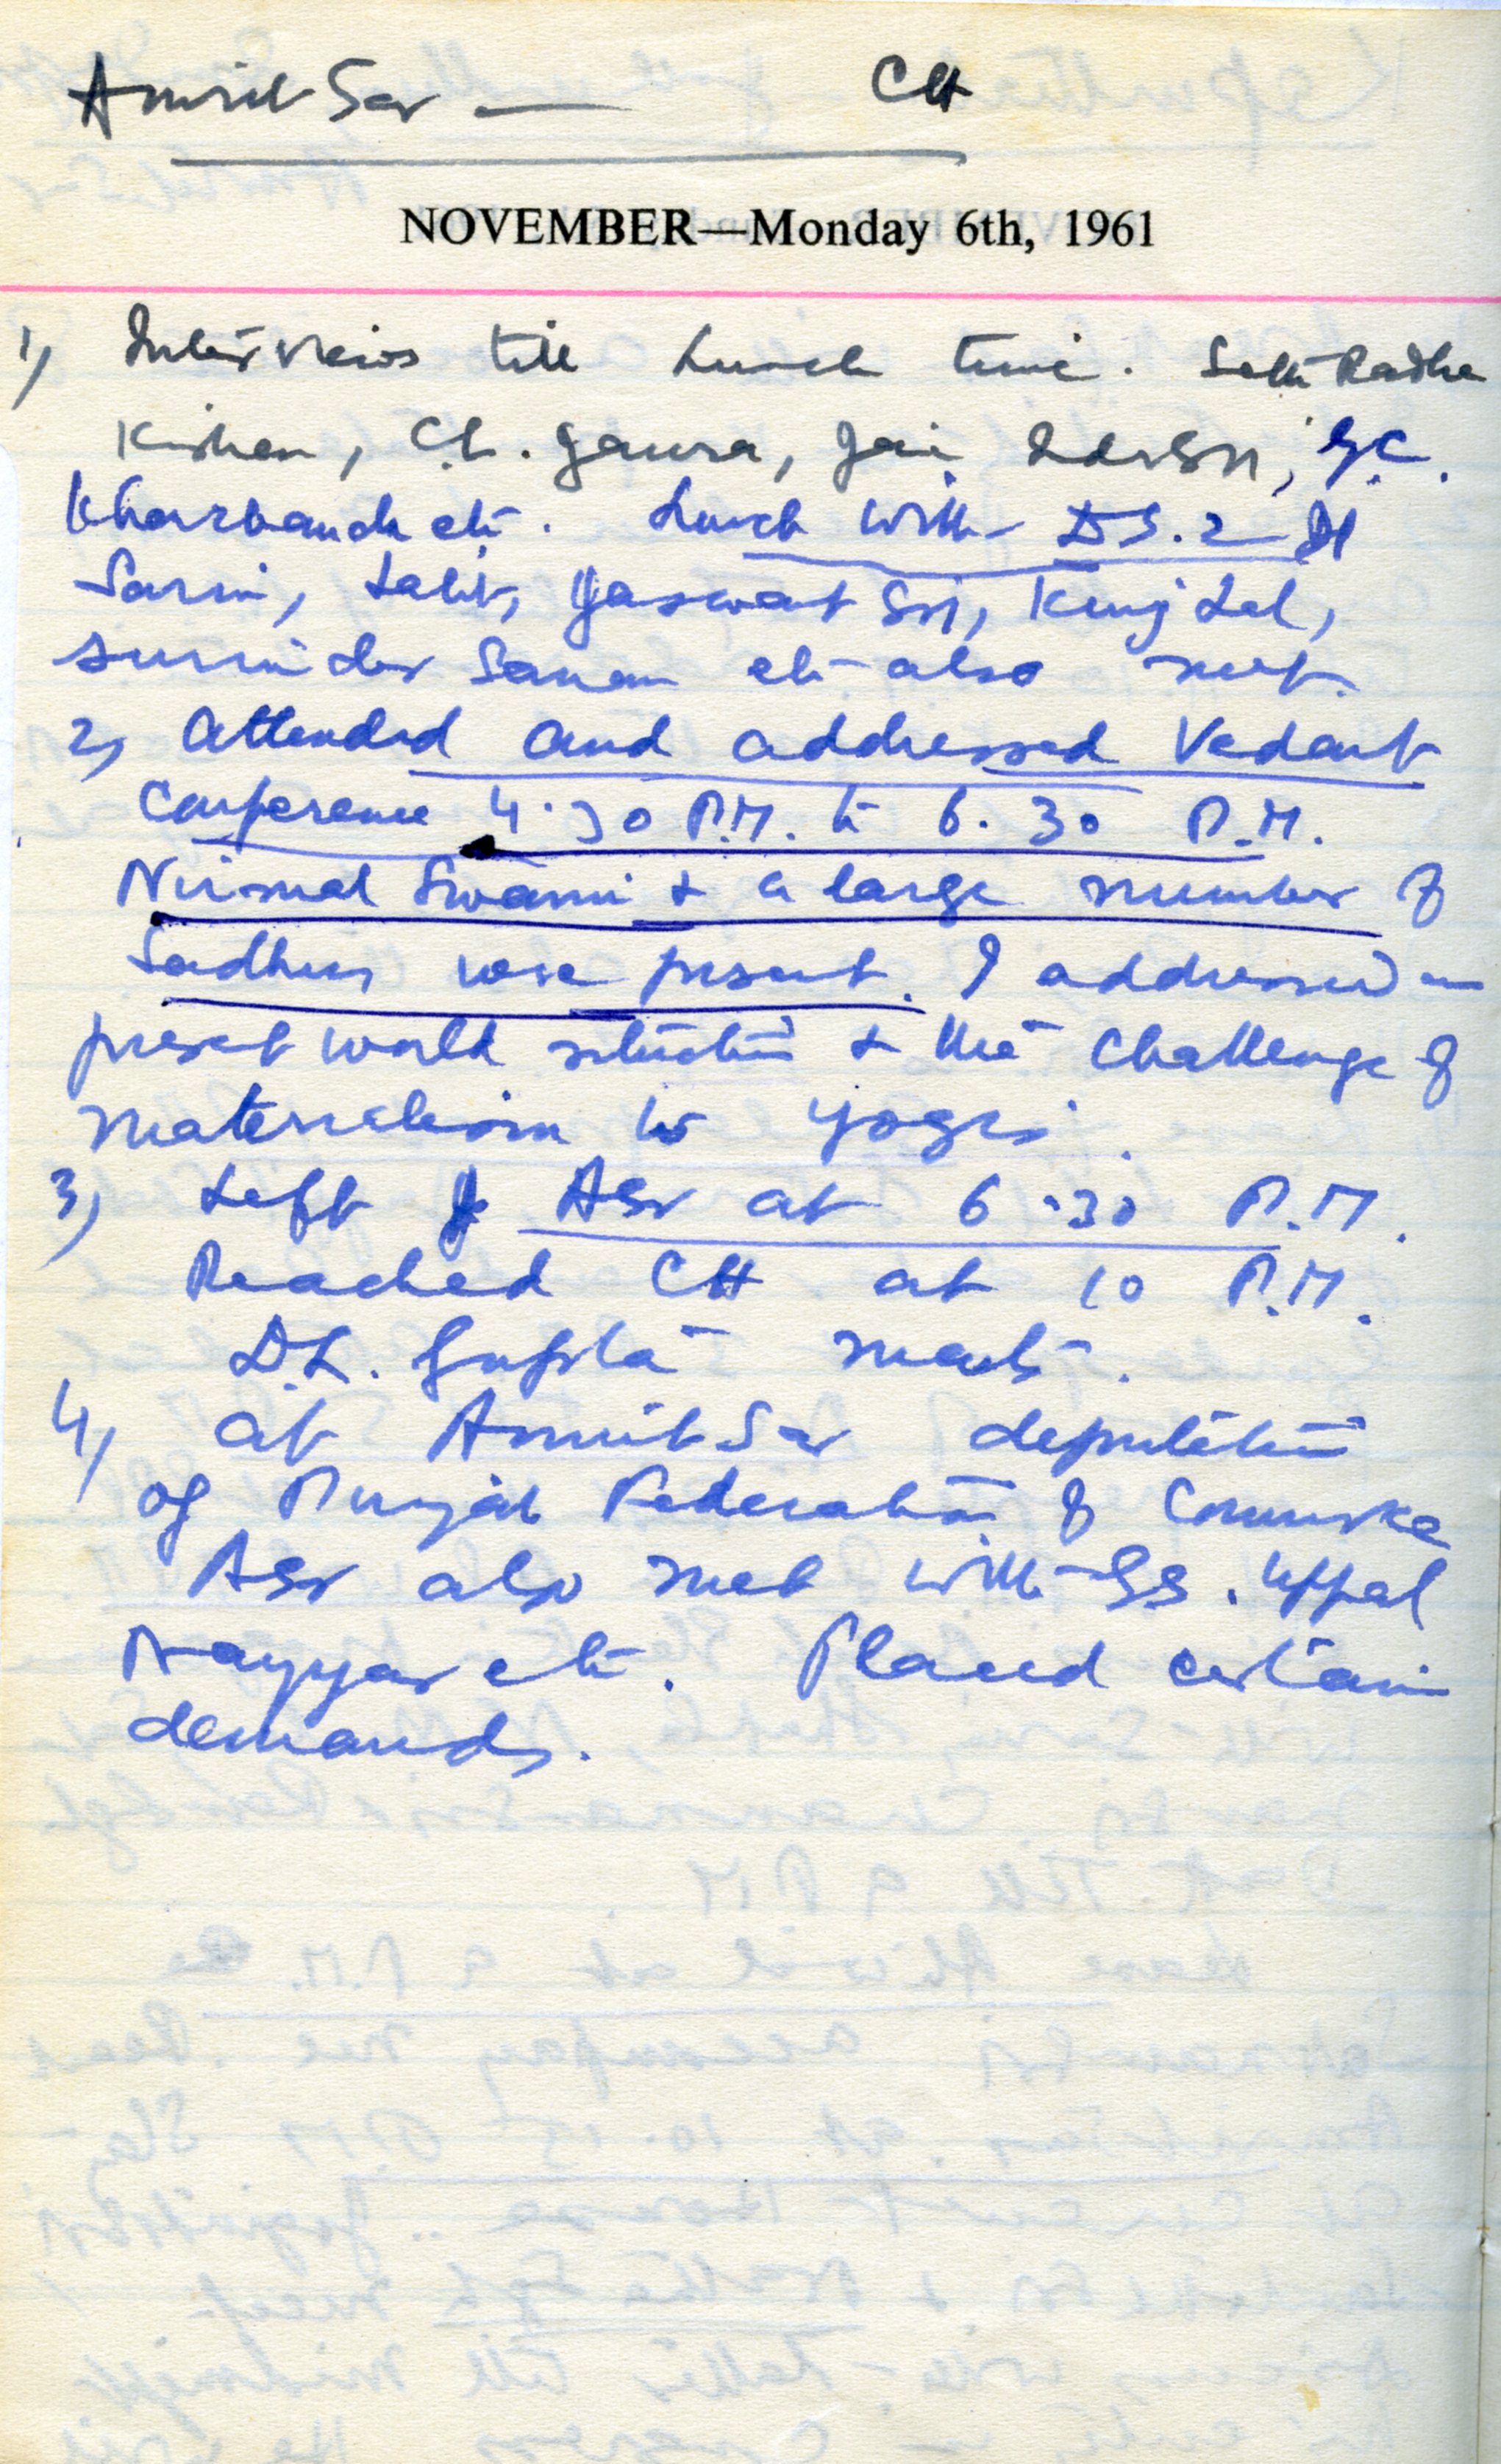 Amritsar — CH
NOVEMBER—Monday 6th, 1961
1) Interviews till Lunch time. Seth Radha
Kishen, Ch. Jai Inder Sn, G.C.
Kharbanda etc. Lunch with D.S. 2
Sarin, Lalit, Jaswant Sn, Kunj Lal,
Surrinder etc also met.
2) Attended and addressed Vedant
Conference 4.30 P.M. to 6.30 P.M.
Nirmal Swami & a large number of
Sadhus were present. I addressed on
present world situation & the Challenge of
materialism to yogis.
3) Left Asr at 6.30 P.M.
Reached CH at 10 P.M.
D.L. Gupta meets.
4) At Amritsar deputation
of Punjab Federation of Commerce
Asr also met with SS. Uppal
Nayyar etc. Placed certain
demands.